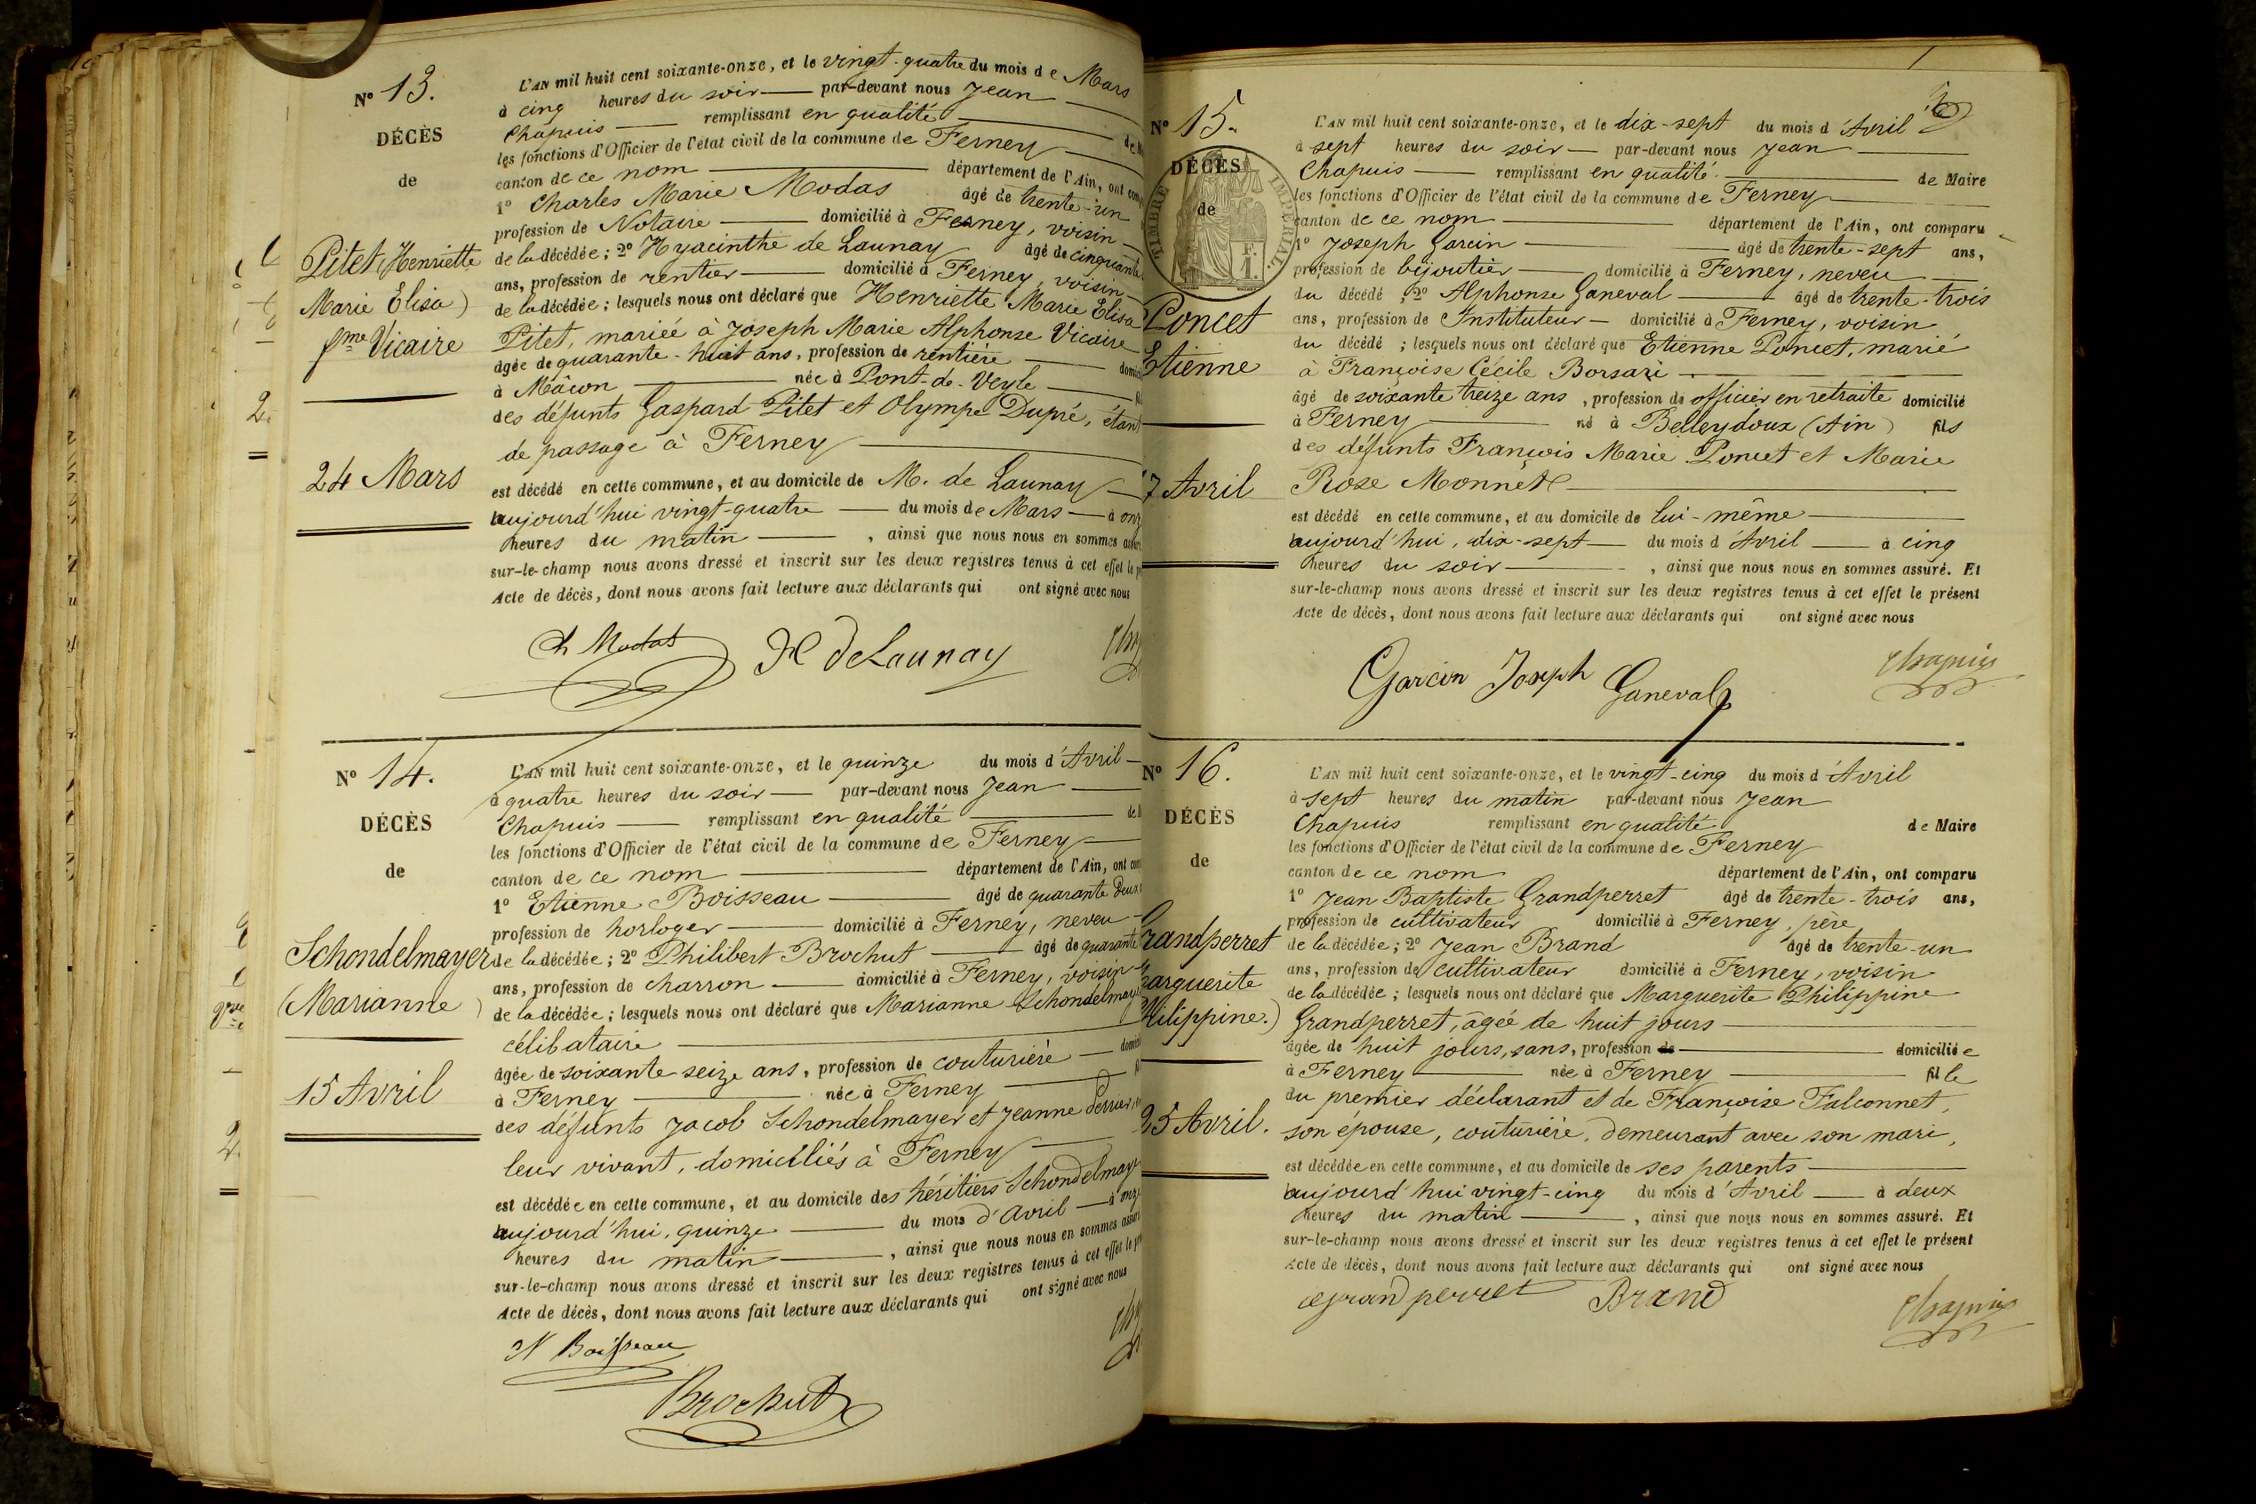 Nº 13.
DÉCÈS
de
Pitet (Henriette
Marie Elisa)
fme Vicaire
24 Mars
L'AN mil huit cent soixante-onze, et le vingt-quatre du mois de Mars
à cinq heures du soir par-devant nous Jean
Chapuis remplissant en qualité de M
les fonctions d'Officier de l'état civil de la commune de Ferney
canton de ce nom département de l'Ain, ont com
1º Charles Marie Modas âgé de trente-un
profession de Notaire domicilié à Ferney, voisin
de la décédée; 2º Hyacinthe de Launay âgé de cinquante
ans, profession de rentier domicilié à Ferney, voisin
de la décédée; lesquels nous ont déclaré que Henriette Marie Elisa
Pitet, mariée à Joseph Marie Alphonse Vicaire
âgée de quarante-huit ans, profession de rentière domici
à Mâcon née à Pont-de-Veyle
des défunts Gaspard Pitet et Olympe Dupré, étant
de passage à Ferney
est décédé en cette commune, et au domicile de M. de Launay
aujourd'hui vingt-quatre du mois de Mars à onz
heures du matin, ainsi que nous nous en sommes
sur-le-champ nous avons dressé et inscrit sur les deux registres tenus à cet effet le p
Acte de décès, dont nous avons fait lecture aux déclarants qui ont signé avec nous
Ch Modas H deLaunay
Nº 14.
DÉCÈS
de
Schondelmayer
(Marianne)
15 Avril
L'AN mil huit cent soixante-onze, et le quinze du mois d'Avril
à quatre heures du soir par-devant nous Jean
Chapuis remplissant en qualité de M
les fonctions d'Officier de l'état civil de la commune de Ferney
canton de ce nom département de l'Ain, ont com
1º Etienne Boisseau âgé de quarante deux
profession de horloger domicilié à Ferney, neveu
de la décédée; 2º Philibert Brochut âgé de quarante
ans, profession de charron domicilié à Ferney, voisin
de la décédée; lesquels nous ont déclaré que Marianne Schondelmay
célibataire
âgée de soixante seize ans, profession de couturière domici
à Ferney née à Ferney
des défunts Jacob Schondelmayer et Jeanne Perrier
leur vivant, domiciliés à Ferney
est décédée en cette commune, et au domicile des héritiers Schondelmay
aujourd'hui, quinze du mois d'Avril à onz
heures du matin, ainsi que nous nous en sommes assuré
sur-le-champ nous avons dressé et inscrit sur les deux registres tenus à cet effet le p
Acte de décès, dont nous avons fait lecture aux déclarants qui ont signé avec nous
Boisseau
Brochut
Nº 15.
DÉCÈS
de
TIMBRE IMPÉRIAL.
F.
1.
Poncet
Etienne
7 Avril
L'AN mil huit cent soixante-onze, et le dix-sept du mois d'Avril
à sept heures du soir par-devant nous Jean
Chapuis remplissant en qualité de Maire
les fonctions d'Officier de l'état civil de la commune de Ferney
canton de ce nom département de l'Ain, ont comparu
1º Joseph Garcin âgé de trente-sept ans,
profession de bijoutier domicilié à Ferney, neveu
du décédé; 2º Alphonse Ganeval âgé de trente-trois
ans, profession de Instituteur domicilié à Ferney, voisin
du décédé; lesquels nous ont déclaré que Etienne Poncet, marié
à Françoise Cécile Borsari
âgé de soixante treize ans, profession de officier en retraite domicilié
à Ferney né à Belleydoux (Ain) fils
des défunts François Marie Poncet et Marie
Rose Monnet
est décédé en cette commune, et au domicile de lui-même
aujourd'hui, dix-sept du mois d'Avril à cinq
heures du soir, ainsi que nous nous en sommes assuré. Et
sur-le-champ nous avons dressé et inscrit sur les deux registres tenus à cet effet le présent
Acte de décès, dont nous avons fait lecture aux déclarants qui ont signé avec nous
Garcin Joseph Ganeval Chapuis
Nº 16.
DÉCÈS
de
Grandperret
Marguerite
Philippine.)
25 Avril.
L'AN mil huit cent soixante-onze, et le vingt-cinq du mois d'Avril
à sept heures du matin par-devant nous Jean
Chapuis remplissant en qualité de Maire
les fonctions d'Officier de l'état civil de la commune de Ferney
canton de ce nom département de l'Ain, ont comparu
1º Jean Baptiste Grandperret âgé de trente-trois ans,
profession de cultivateur domicilié à Ferney, père
de la décédée; 2º Jean Brand âgé de trente-un
ans, profession de cultivateur domicilié à Ferney, voisin
de la décédée; lesquels nous ont déclaré que Marguerite Philippine
Grandperret, âgée de huit jours
âgée de huit jours, sans, profession de domiciliée
à Ferney née à Ferney fille
du premier déclarant et de Françoise Falconnet,
son épouse, couturière, demeurant avec son mari,
est décédée en cette commune, et au domicile de ses parents
aujourd'hui vingt-cinq du mois d'Avril à deux
heures du matin, ainsi que nous nous en sommes assuré. Et
sur-le-champ nous avons dressé et inscrit sur les deux registres tenus à cet effet le présent
Acte de décès, dont nous avons fait lecture aux déclarants qui ont signé avec nous
grandperret Brand Chapuis